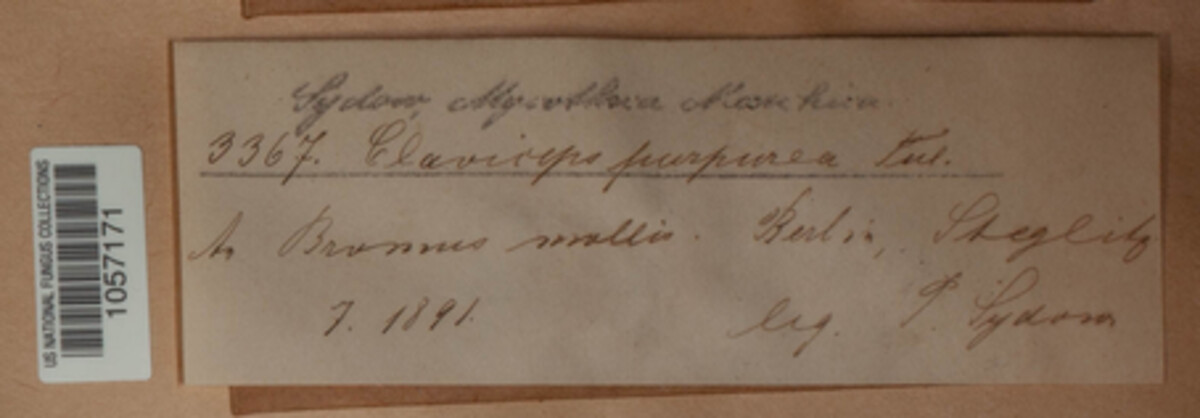 Sydow, Mycotheca Marchica.
3367. Claviceps purpurea Tul.
An Bromus mollis. Berlin, Steglitz
7. 1891. leg. P. Sydow
US NATIONAL FUNGUS COLLECTIONS
1057171